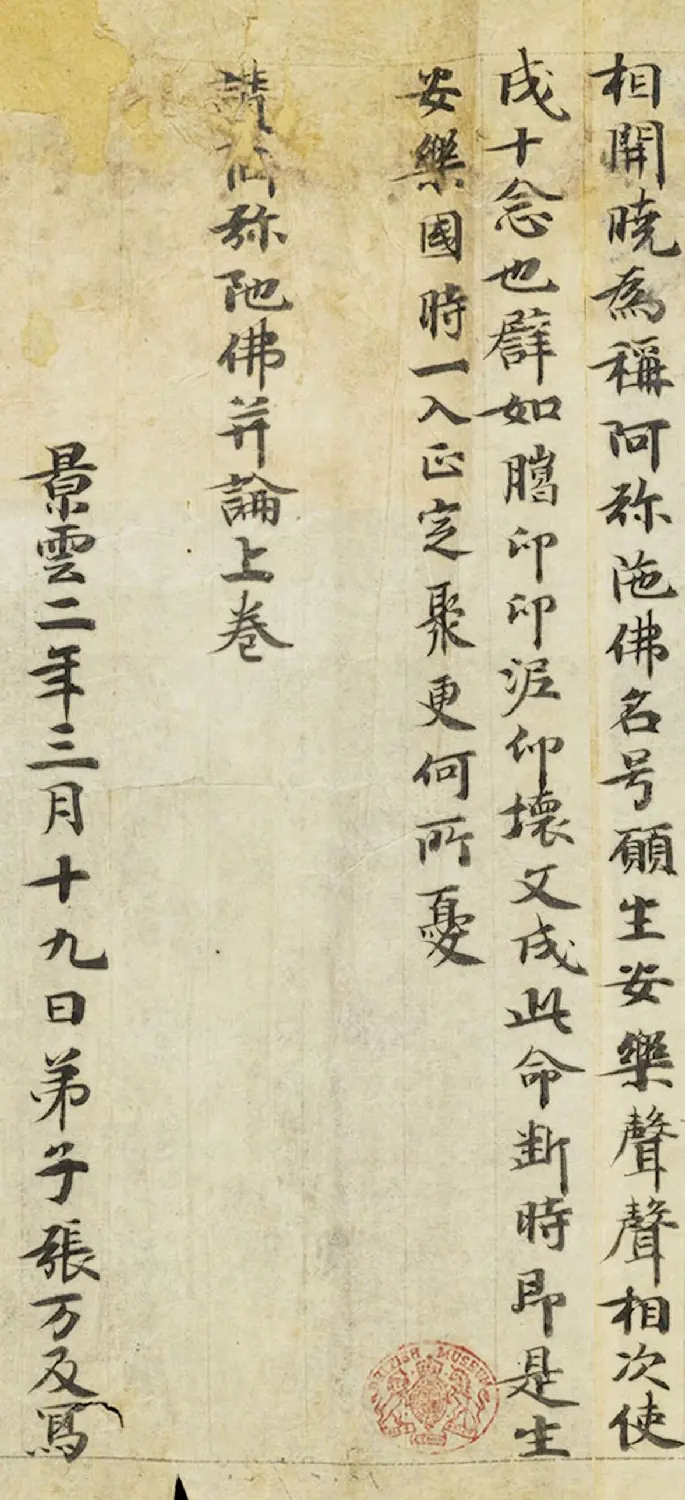 相開曉為稱阿弥陁佛名号願生安樂聲聲相次使
成十念也譬如臈印印泥印壞文成此命斷時即是生
安樂國時一入正定聚更何所憂
讃阿弥陁佛并論上卷
景雲二年三月十九日弟子張万及寫
BRITISH MUSEUM